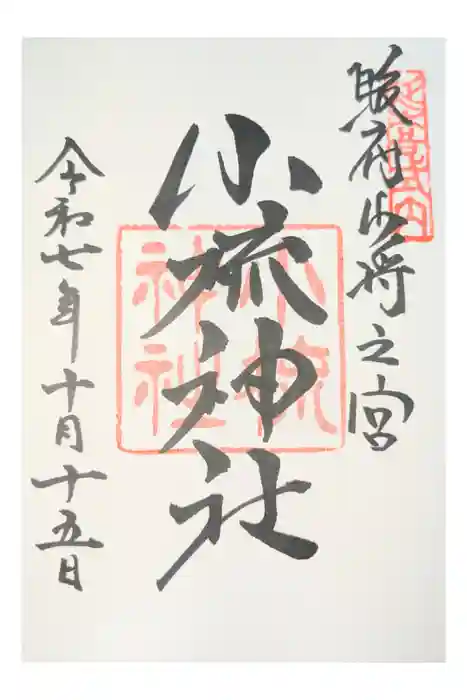 延喜式内
駿府少将之宮
小梳神社
小梳
神社
令和七年十月十五日